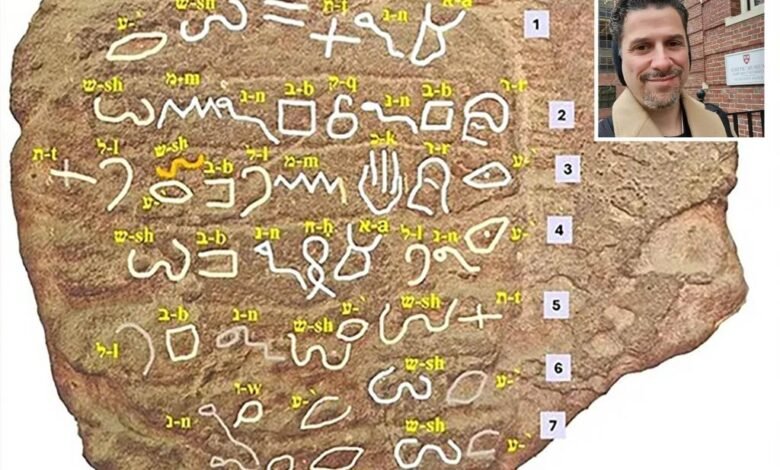 ע-` ש-sh ת-t נ-n א-a 1
ש-sh מ-m נ-n ב-b ק-q נ-n ב-b ר-r 2
ת-t ל-l ש-sh ע-` ב-b ל-l מ-m כ-k ר-r ע-` 3
ש-sh ב-b נ-n ח-ḥ א-a ל-l נ-n ע-` 4
ל-l ב-b נ-n ש-sh ע-` ש-sh ת-t 5
ש-sh ע-` 6
נ-n ו-w ע-` ש-sh ע-` 7